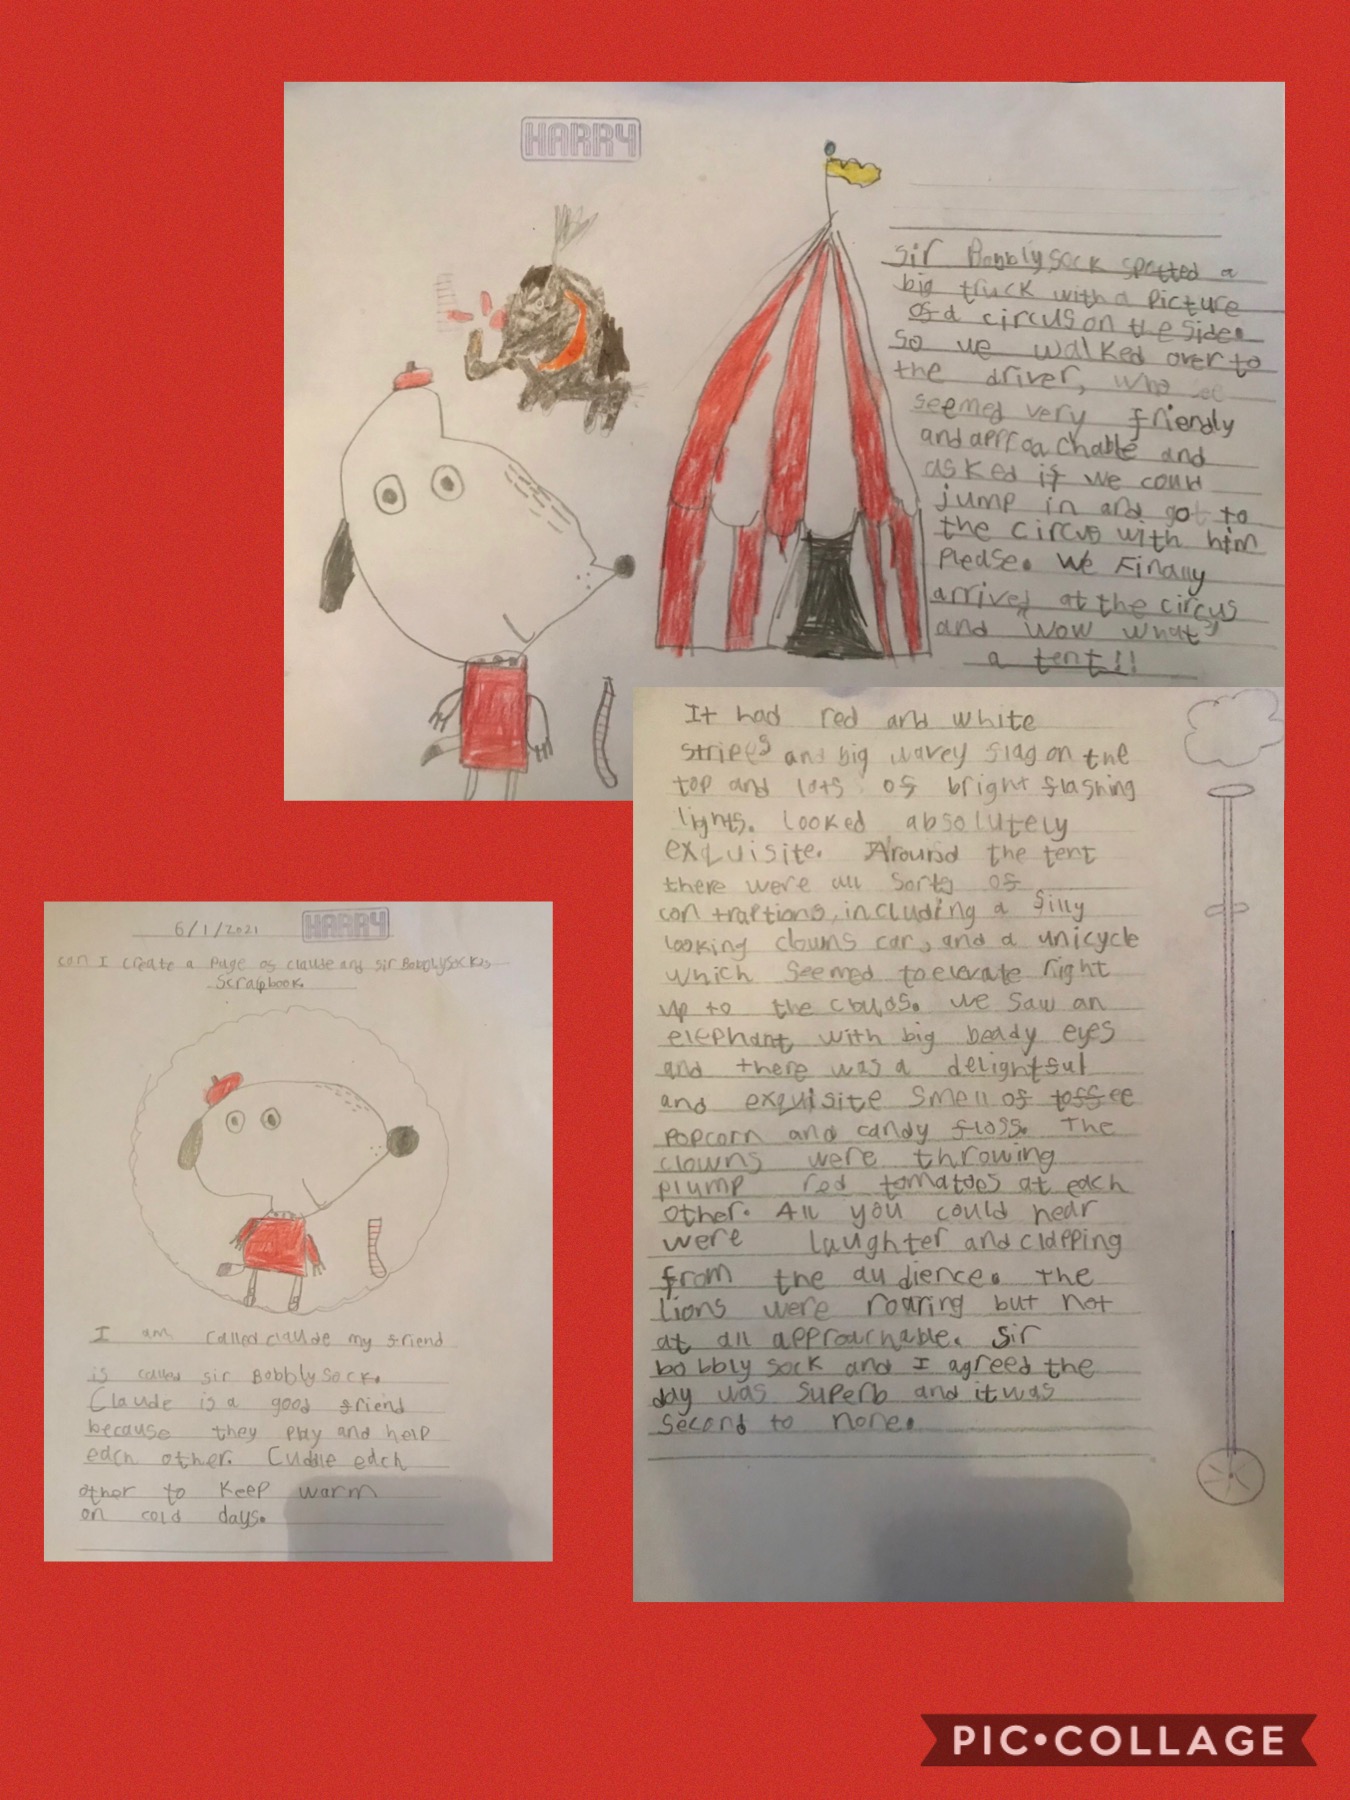 HARRY
Sir Bobbly sock spotted a
big truck with a Picture
of a circus on the side.
so we walked over to
the driver, who
seemed very friendly
and approachable and
asked if we could
jump in and got to
the circus with him
Please. We Finally
arrived at the circus
and "wow what"
a tent!!
It had red and white
stripes and big wavey flag on the
top and lots of bright flashing
lights. looked absolutely
exquisite. Around the tent
there were all sorts of
contraptions, including a silly
looking clowns car, and a unicycle
which seemed to elevate right
up to the clouds. we saw an
elephant with big beady eyes
and there was a delightful
and exquisite smell of toffee
popcorn and candy floss. The
clowns were throwing
plump red tomatoes at each
other. All you could hear
were laughter and clapping
from the audience. the
lions were roaring but not
at all approachable. Sir
bobbly sock and I agreed the
day was superb and it was
second to none.
6/1/2021
HARRY
can I create a Page of claude and sir Bobblysocks
Scrapbook.
I am called claude my friend
is called sir Bobbly sock.
Claude is a good friend
because they play and help
each other. Cuddle each
other to keep warm
on cold days.
PIC•COLLAGE